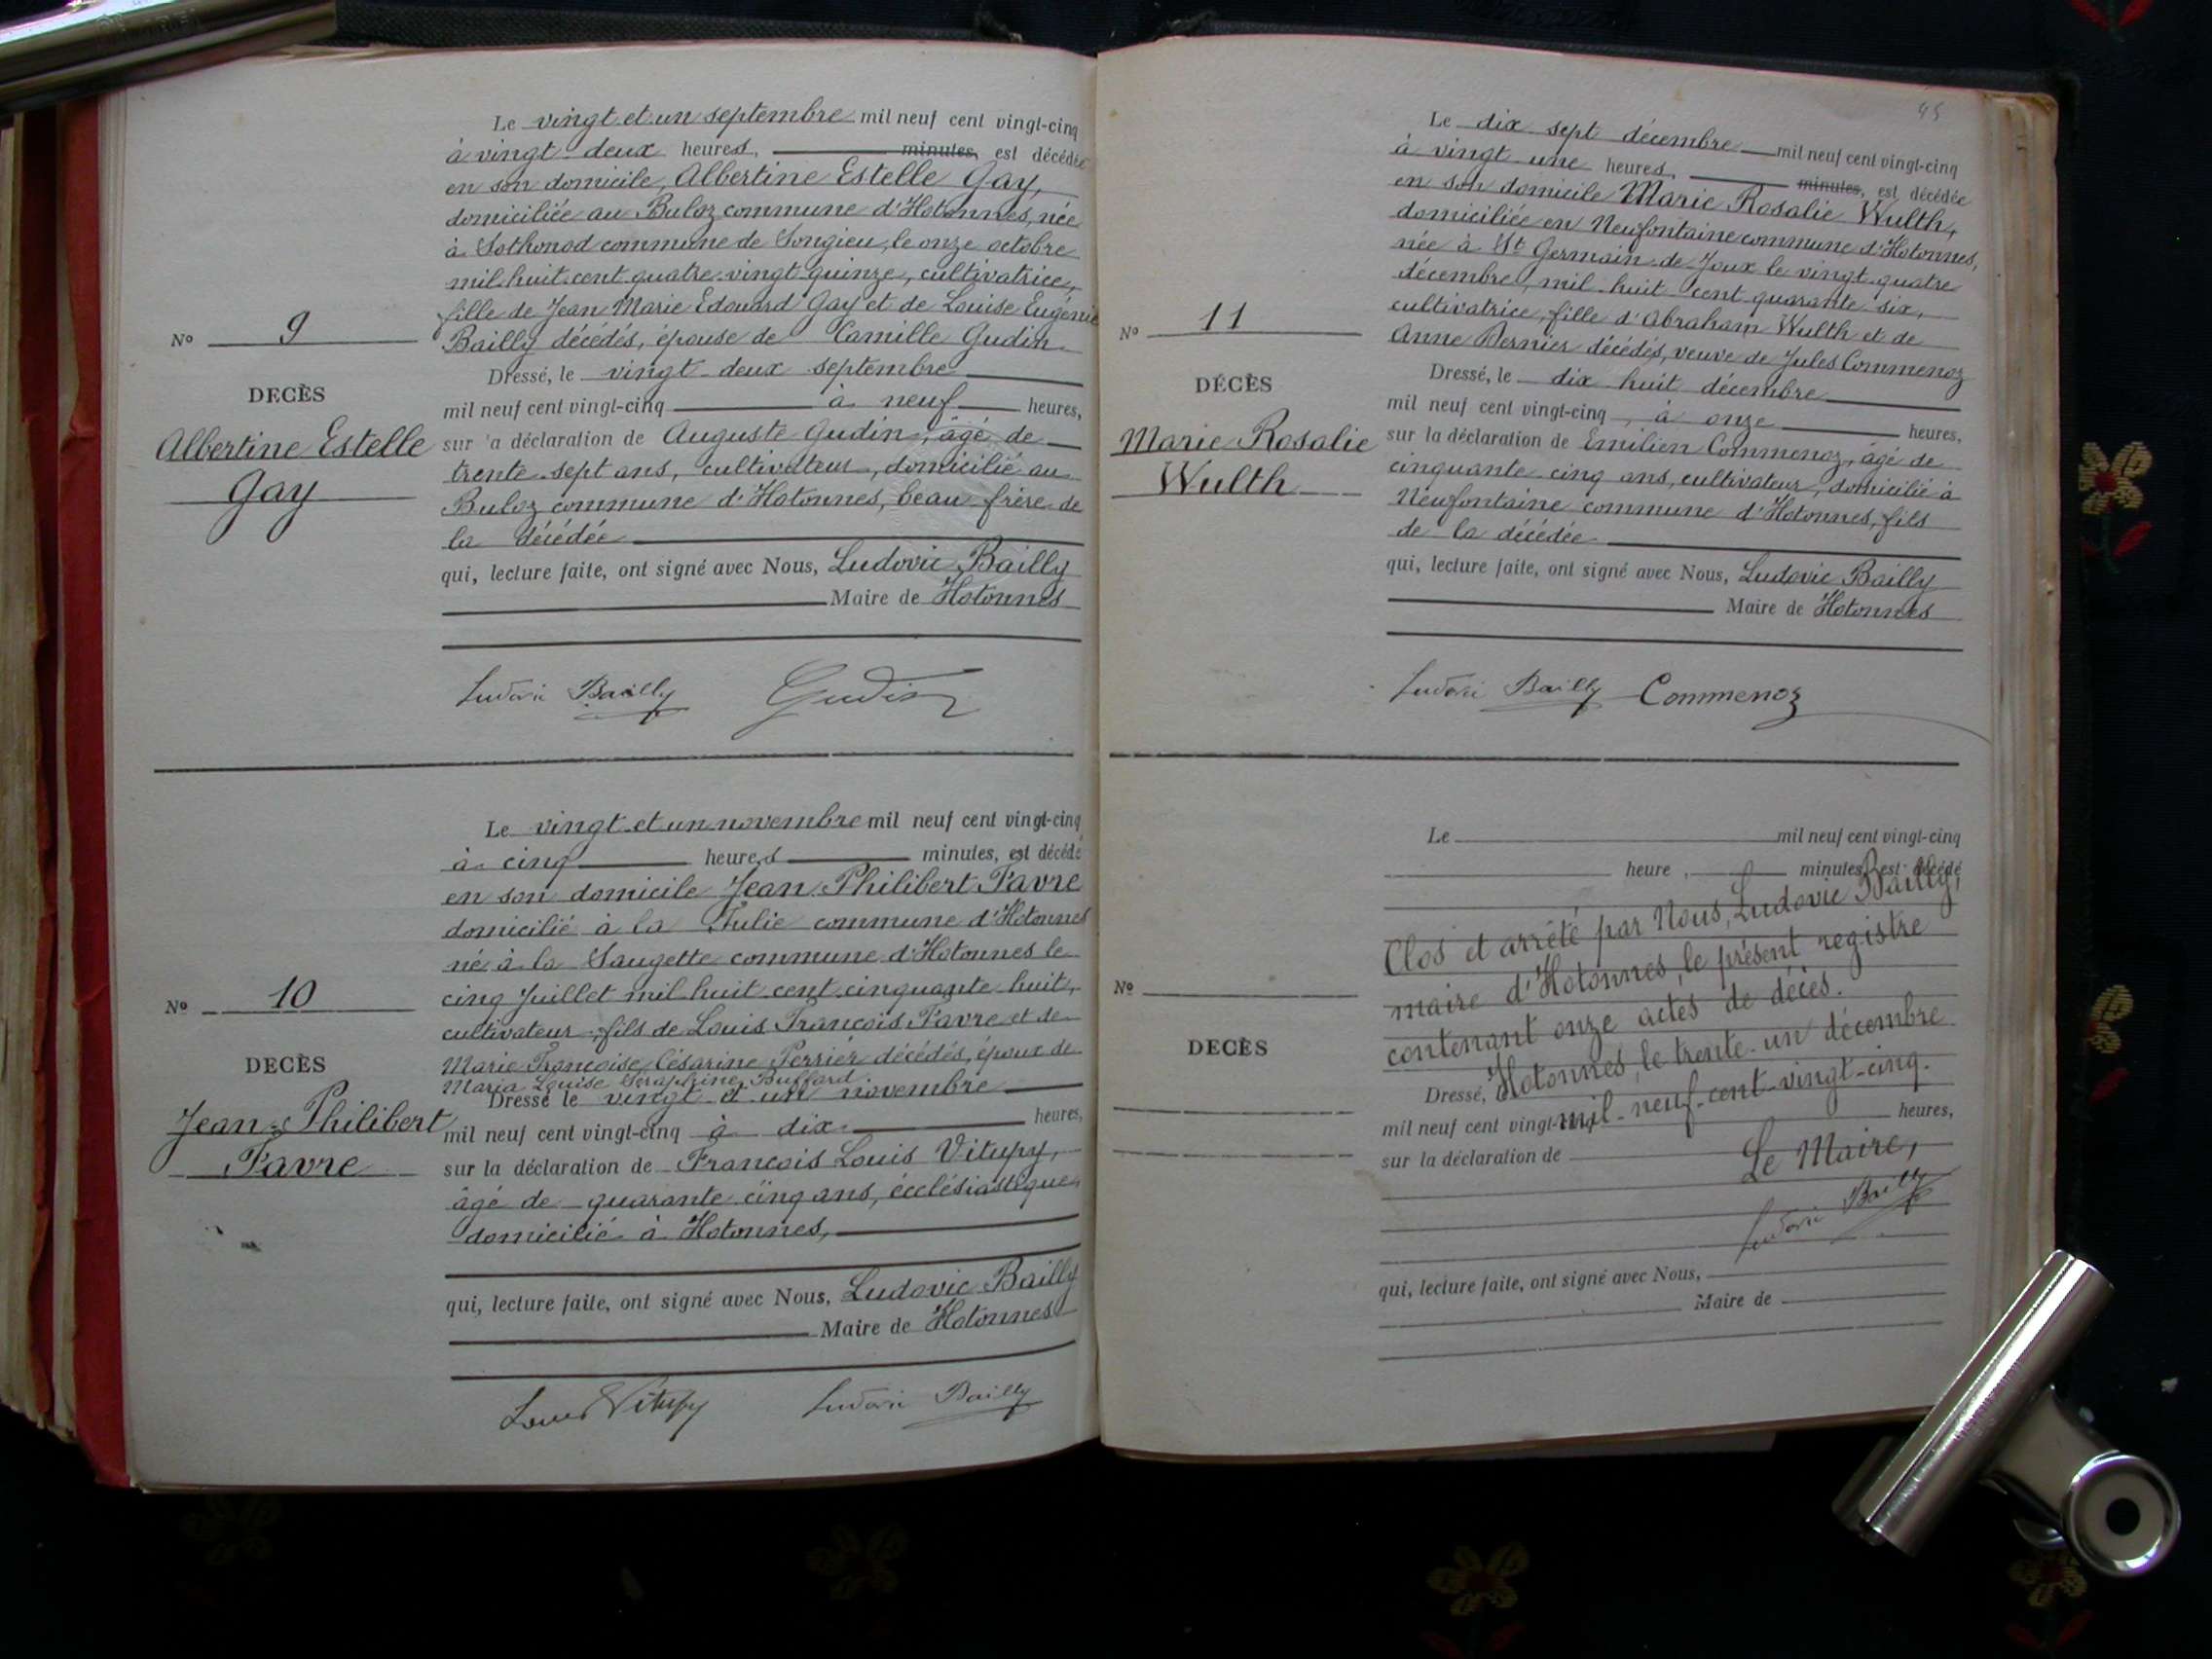 Le vingt et un septembre mil neuf cent vingt-cinq
à vingt deux heures, minutes, est décédée
en son domicile, Albertine Estelle Gay,
domiciliée au Buloz commune d'Hotonnes, née
à Sothonod commune de Songieu, le onze octobre
mil huit cent quatre vingt quinze, cultivatrice,
fille de Jean Marie Edouard Gay et de Louise Eugénie
Bailly décédés, épouse de Camille Gudin
Dressé, le vingt deux septembre
mil neuf cent vingt-cinq à neuf heures,
sur la déclaration de Auguste Gudin, âgé de
trente sept ans, cultivateur, domicilié au
Buloz commune d'Hotonnes, beau frère de
la décédée
qui, lecture faite, ont signé avec Nous, Ludovic Bailly
Maire de Hotonnes
Ludovic Bailly Gudin
No 9
DECÈS
Albertine Estelle
Gay
Le vingt et un novembre mil neuf cent vingt-cinq
à cinq heures minutes, est décédé
en son domicile Jean Philibert Favre
domicilié à la Tulie commune d'Hotonnes
né à la Saugette commune d'Hotonnes le
cinq Juillet mil huit cent cinquante huit,
cultivateur, fils de Louis François Favre et de
Marie Françoise Césarine Perrier décédés, époux de
Maria Louise Seraphine Buffard.
Dressé le vingt et un novembre
mil neuf cent vingt-cinq à dix heures,
sur la déclaration de Francois Louis Vitupy,
âgé de quarante cinq ans, écclésiastique
domicilié à Hotonnes,
qui, lecture faite, ont signé avec Nous, Ludovic Bailly
Maire de Hotonnes
Louis Vitupy Ludovic Bailly
No 10
DECÈS
Jean Philibert
Favre
45
Le dix sept décembre mil neuf cent vingt-cinq
à vingt une heures, minutes, est décédée
en son domicile Marie Rosalie Wulth,
domiciliée en Neufontaine commune d'Hotonnes,
née à St Germain de Joux le vingt quatre
décembre, mil huit cent quarante six,
cultivatrice, fille d'Abraham Wulth et de
Anne Bernier décédés, veuve de Jules Commenoz
Dressé, le dix huit décembre
mil neuf cent vingt-cinq, à onze heures,
sur la déclaration de Emilien Commenoz, âgé de
cinquante cinq ans, cultivateur, domicilié à
Neufontaine commune d'Hotonnes, fils
de la décédée
qui, lecture faite, ont signé avec Nous, Ludovic Bailly
Maire de Hotonnes
Ludovic Bailly Commenoz
No 11
DÉCÈS
Marie Rosalie
Wulth
Le mil neuf cent vingt-cinq
heure, minutes, est décédé
Clos et arrêté par Nous, Ludovic Bailly,
maire d'Hotonnes, le présent registre
contenant onze actes de décès.
Dressé, Hotonnes, le trente-un décembre
mil neuf cent vingt-cinq mil-neuf-cent-vingt-cinq.
heures,
sur la déclaration de
Le Maire,
Ludovic Bailly
qui, lecture faite, ont signé avec Nous,
Maire de
No
DECÈS